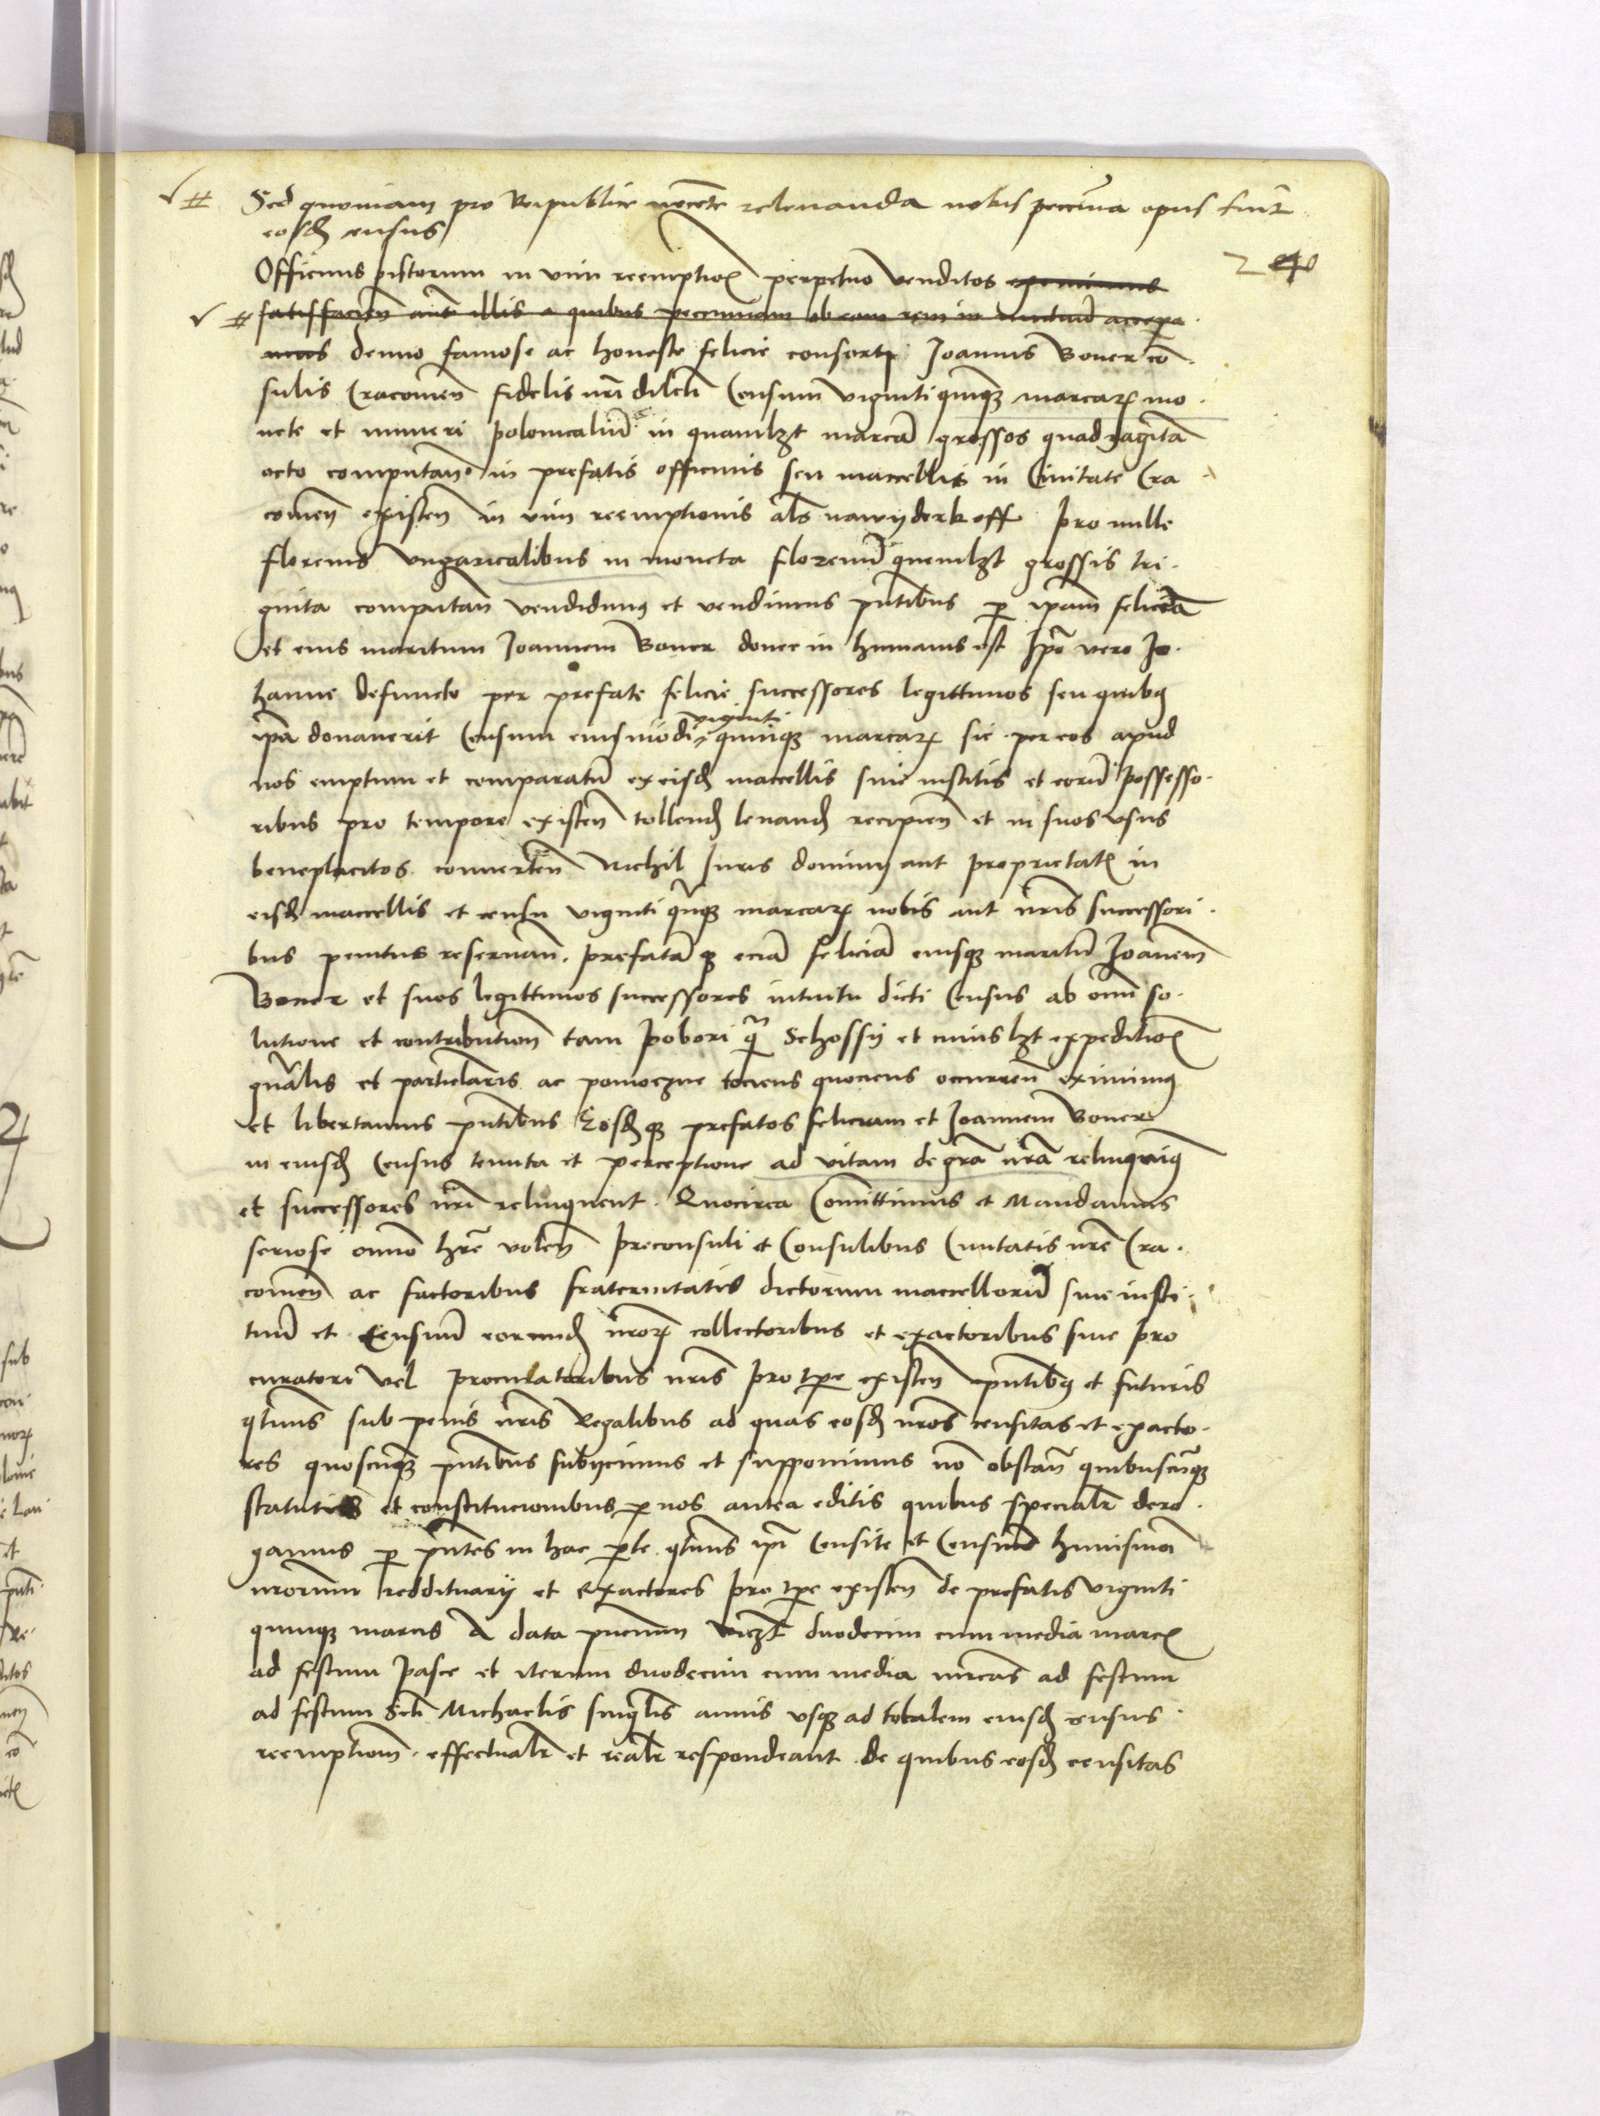 √ # Sed quoniam pro Reipublice nec̄cte relevanda nobis peccunia opus fuit
eosd census
Officinis pistorum in vim reemption perpetuo venditos eximimus
√ # satisfacien aut illis a quibus peccuniam ob eam rem in mutuu accepe-
ramus denuo famose ac honeste felicie consorti Joannis Boner con-
sulis Cracovien fidelis nri dilecti Censum viginti quinq marcar mo-
nete et numeri polonicaliu in quamlzt marca grossos quadraginta
octo computan in prefatis officinis seu maccellis in Civitate Cra
covien existen in vim reemptionis als nawyderkoff pro mille
florenis Vngaricalibus in moneta florenu quemlzt grossis tri-
ginta computan vendidimus et vendimus pntibus p ipam felicia
et eius maritum Joannem Boner donec in humanis est Ipo vero Jo-
hanne defuncto per prefate felicie successores legittimos seu quibus
ipa donaverit Censum eiusmodi viginti quinq marcar sic per eos apud
nos emptum et comparatu ex eisd maccellis sive institis et eoru possesso-
ribus pro tempore existen tollend levand recipien et in suos vsus
beneplacitos converten Nichil Juris dominii aut proprietatis in
eisd maccellis et censu viginti quinq marcar nobis aut nris successori-
bus penitus reservan. prefatam q eciam feliciam eiusq maritu Joanem
Boner et suos legittimos successores intuitu dicti Census ab omni so-
lutione et contribution tam pobori q Schossii et cuiuslzt expedition
gnalis et particularis ac pomoczne tociens quociens occurren eximimus
et libertamus pntibus Eosd q prefatos feliciam et Joannem Boner
in eiusd Census tenuta et perceptione ad vitam de gra nra relinquimus
et successores nri relinquent. Quocirca Comittimus et Mandamus
seriose omnino hre volen Preconsuli et Consulibus Civitatis nre Cra-
covien ac factoribus fraternitatis dictorum maccelloru sive insti-
tutu et Censuu eorund nror collectoribus et exactoribus sive pro
curatori vel procuratoribus nris pro tpe existen pntibus et futuris
qtinus sub penis nris Regalibus ad quas eosd nros censitas et exacto-
res quoscunq pntibus subiicimus et supponimus no obstan quibuscunq
statutis et constitucionibus p nos antea editis quibus specialr dero-
gamus p pntes in hac pte qtinus ipi Censite et Censuu huiusmoi
nrorum reddituarii et Exactores pro tpe existen de prefatis viginti
quinq marcis A data pncium viczt duodecim cum media marcis
ad festum pasce et iterum duodecim cum media mrcas ad festum
ad festum Scti Michaelis singulis annis vsq ad totalem eiusd census
reemptionem effectualr et realr respondeant. De quibus eosd censitas
240